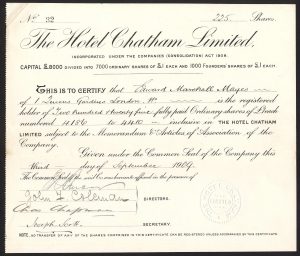 No. 32 225 Shares.
The Hotel Chatham Limited,
INCORPORATED UNDER THE COMPANIES (CONSOLIDATION) ACT 1908.
CAPITAL £8000 DIVIDED INTO 7000 ORDINARY SHARES OF £1 EACH AND 1000 FOUNDERS SHARES OF £1 EACH.
THIS IS TO CERTIFY that Edward Marshall Mayes
of 1 Gardens London, W. is the registered
holder of Two hundred & twenty five fully paid Ordinary shares of £1 each
numbered 4186 to 4410 inclusive in THE HOTEL CHATHAM
LIMITED subject to the Memorandum & Articles of Association of the
Company.
Given under the Common Seal of the Company this
third day of September 1909.
The Common Seal of the Company was hereunto affixed in the presence of
John
DIRECTORS.
Chas Chapman
Joseph Scott
SECRETARY.
NOTE, NO TRANSFER OF ANY OF THE SHARES COMPRISED IN THIS CERTIFICATE CAN BE REGISTERED UNLESS ACCOMPANIED BY THIS CERTIFICATE.